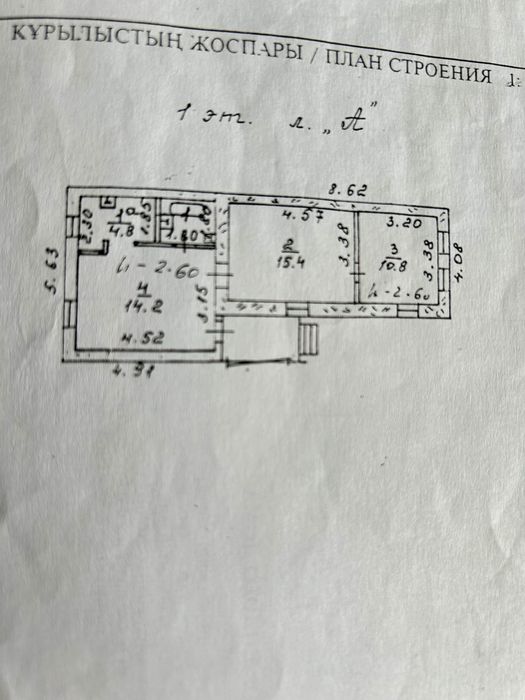 ҚҰРЫЛЫСТЫҢ ЖОСПАРЫ / ПЛАН СТРОЕНИЯ
1 эт. л. „А”
8.62
4.57
3.20
2.30
4.8
1.85
1.80
2
15.4
3.38
3
10.8
3.38
4.08
h-2.60
h-2.60
5.63
4
14.2
3.15
4.52
4.91